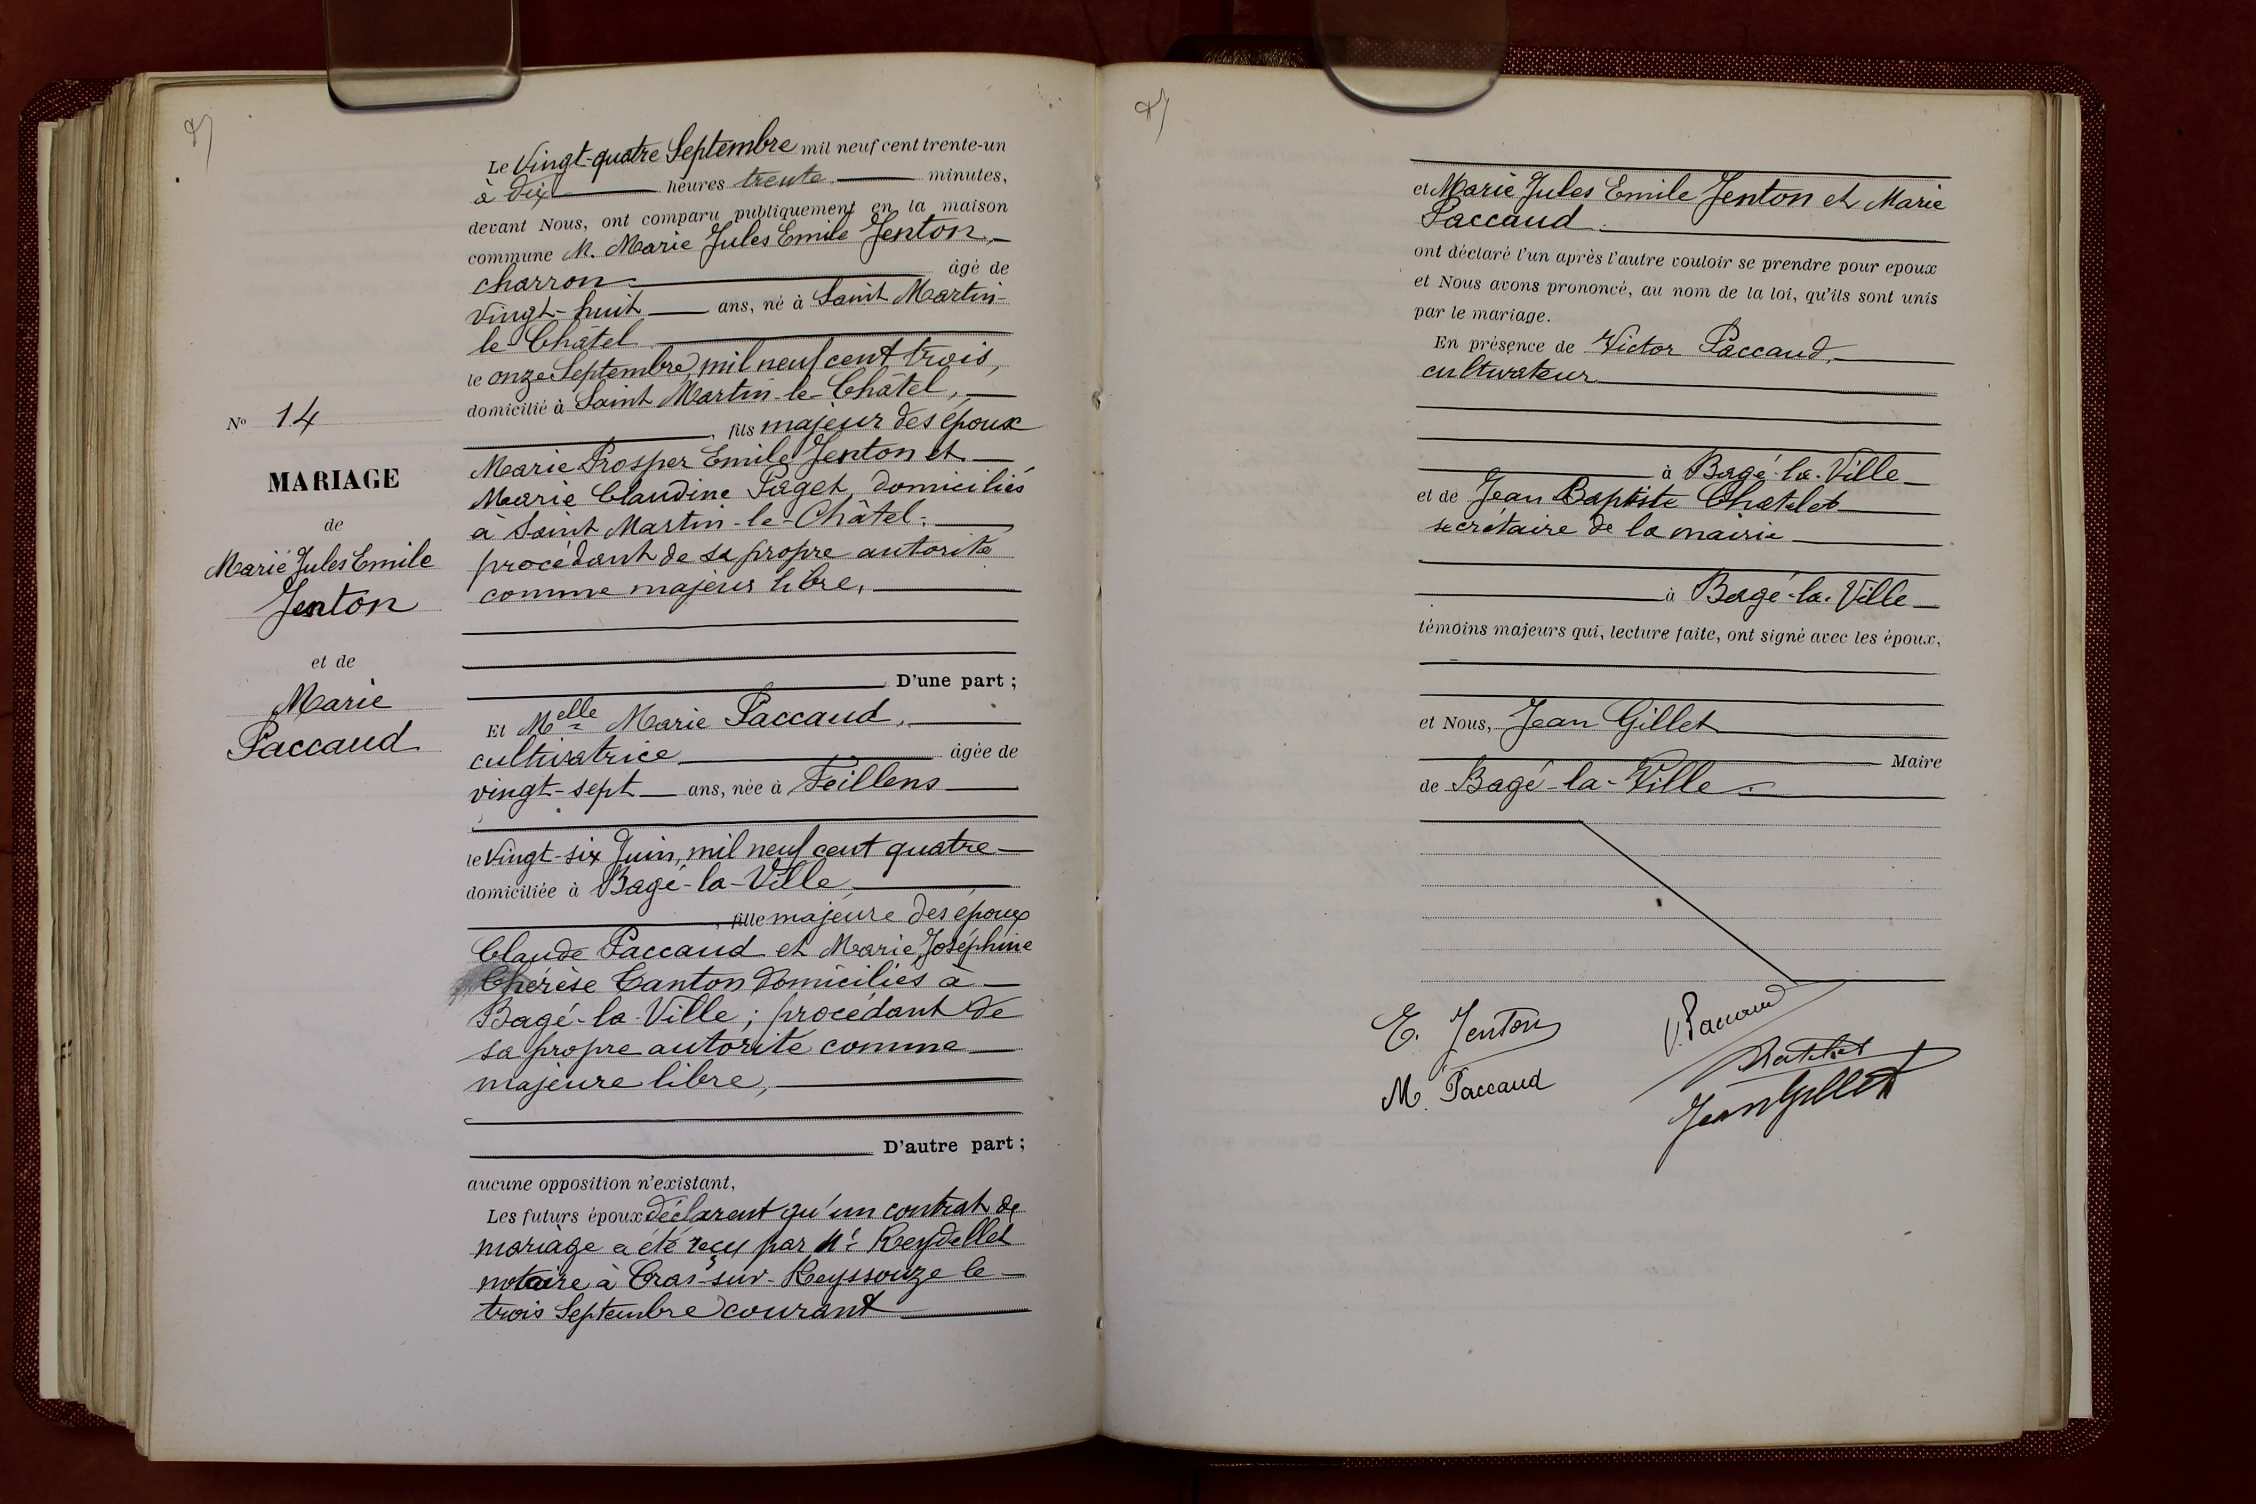 Le Vingt-quatre Septembre mil neuf cent trente-un
à dix heures trente minutes,
devant Nous, ont comparu publiquement en la maison
commune M. Marie Jules Emile Jenton,
charron âgé de
vingt-huit ans, né à Saint Martin-
le Châtel
le onze Septembre, mil neuf cent trois,
domicilié à Saint Martin-le-Châtel,
, fils majeur des époux
Marie Prosper Emile Jenton et
Marie Claudine Paget, domiciliés
à Saint Martin-le-Châtel;
procédant de sa propre autorité
comme majeur libre,
D'une part;
Nº 14
MARIAGE
de
Marie Jules Emile
Jenton
et de
Marie
Paccaud
Et Melle Marie Paccaud,
cultivatrice âgée de
vingt-sept ans, née à Feillens
le Vingt-six Juin, mil neuf cent quatre
domiciliée à Bagé-la-Ville
, fille majeure des époux
Claude Paccaud et Marie Joséphine
Thérèse Tanton domiciliés à
Bagé-la-Ville; procédant de
sa propre autorité comme
majeure libre,
D'autre part;
aucune opposition n'existant,
Les futurs époux déclarent qu'un contrat de
mariage a été reçu par Me Reydellet
notaire à Cras-sur-Reyssouze le
trois Septembre courant
et Marie Jules Emile Jenton et Marie
Paccaud
ont déclaré l'un après l'autre vouloir se prendre pour époux
et Nous avons prononcé, au nom de la loi, qu'ils sont unis
par le mariage.
En présence de Victor Paccaud,
cultivateur
à Bagé-la-Ville
et de Jean Baptiste Chatelet
secrétaire de la mairie
à Bagé-la-Ville
témoins majeurs qui, lecture faite, ont signé avec les époux,
et Nous, Jean Gillet
Maire
de Bagé-la-Ville.
E. Jenton
V. Paccaud
M. Paccaud
Jean Gillet